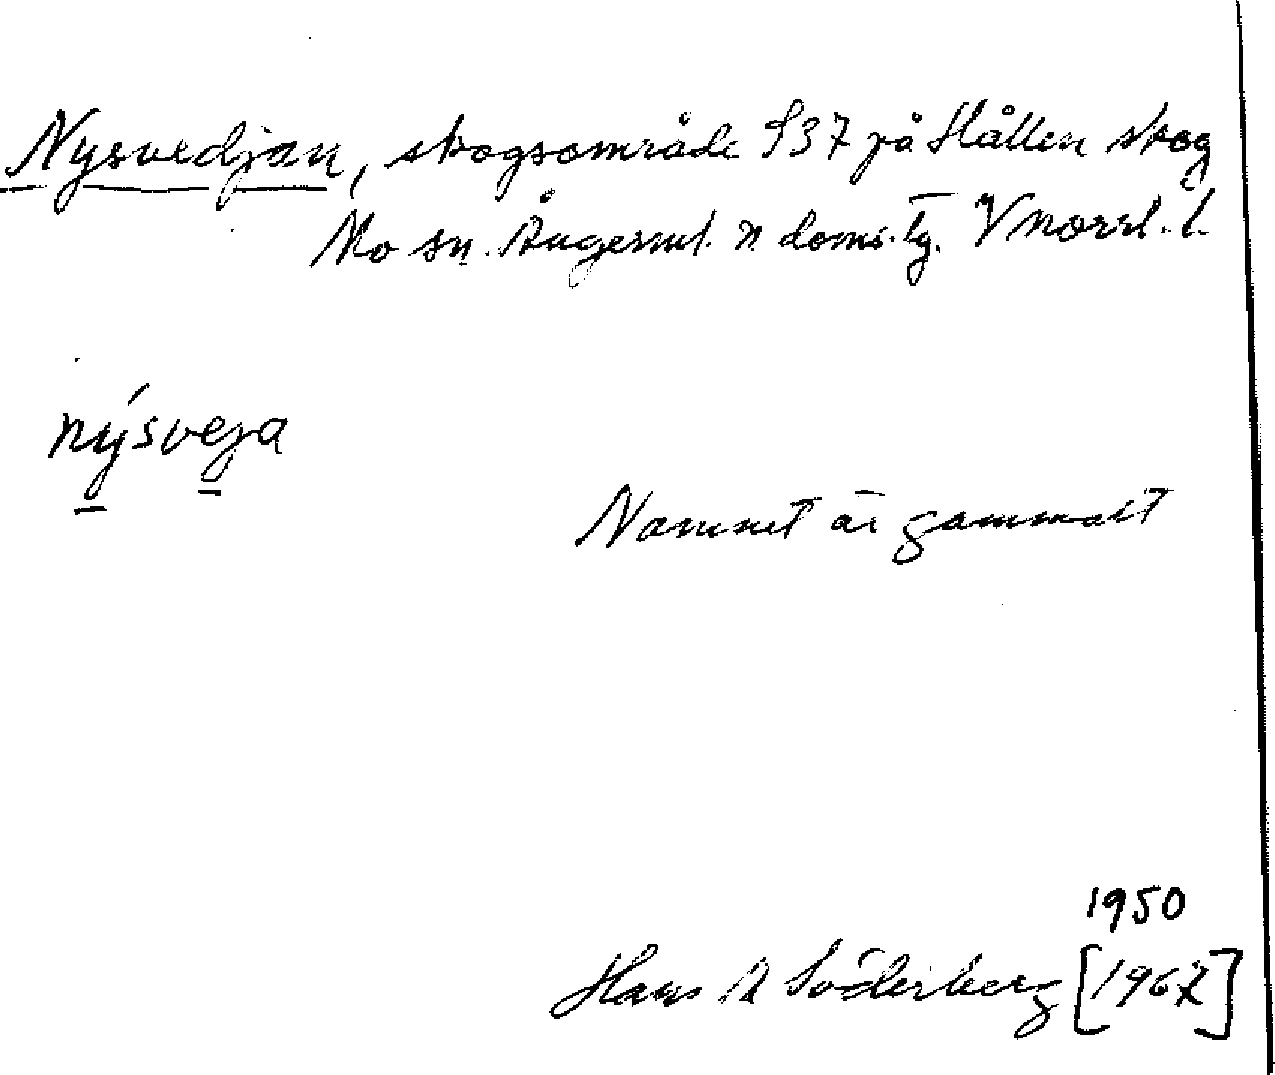 Nysvedjan, skogsområde S37 på Hållen skog
Mo sn. Ångerml. N doms. tg. Vnorrl. l.
nýsveja
Namnet är gammalt
1950
Hans A Söderberg [1967]